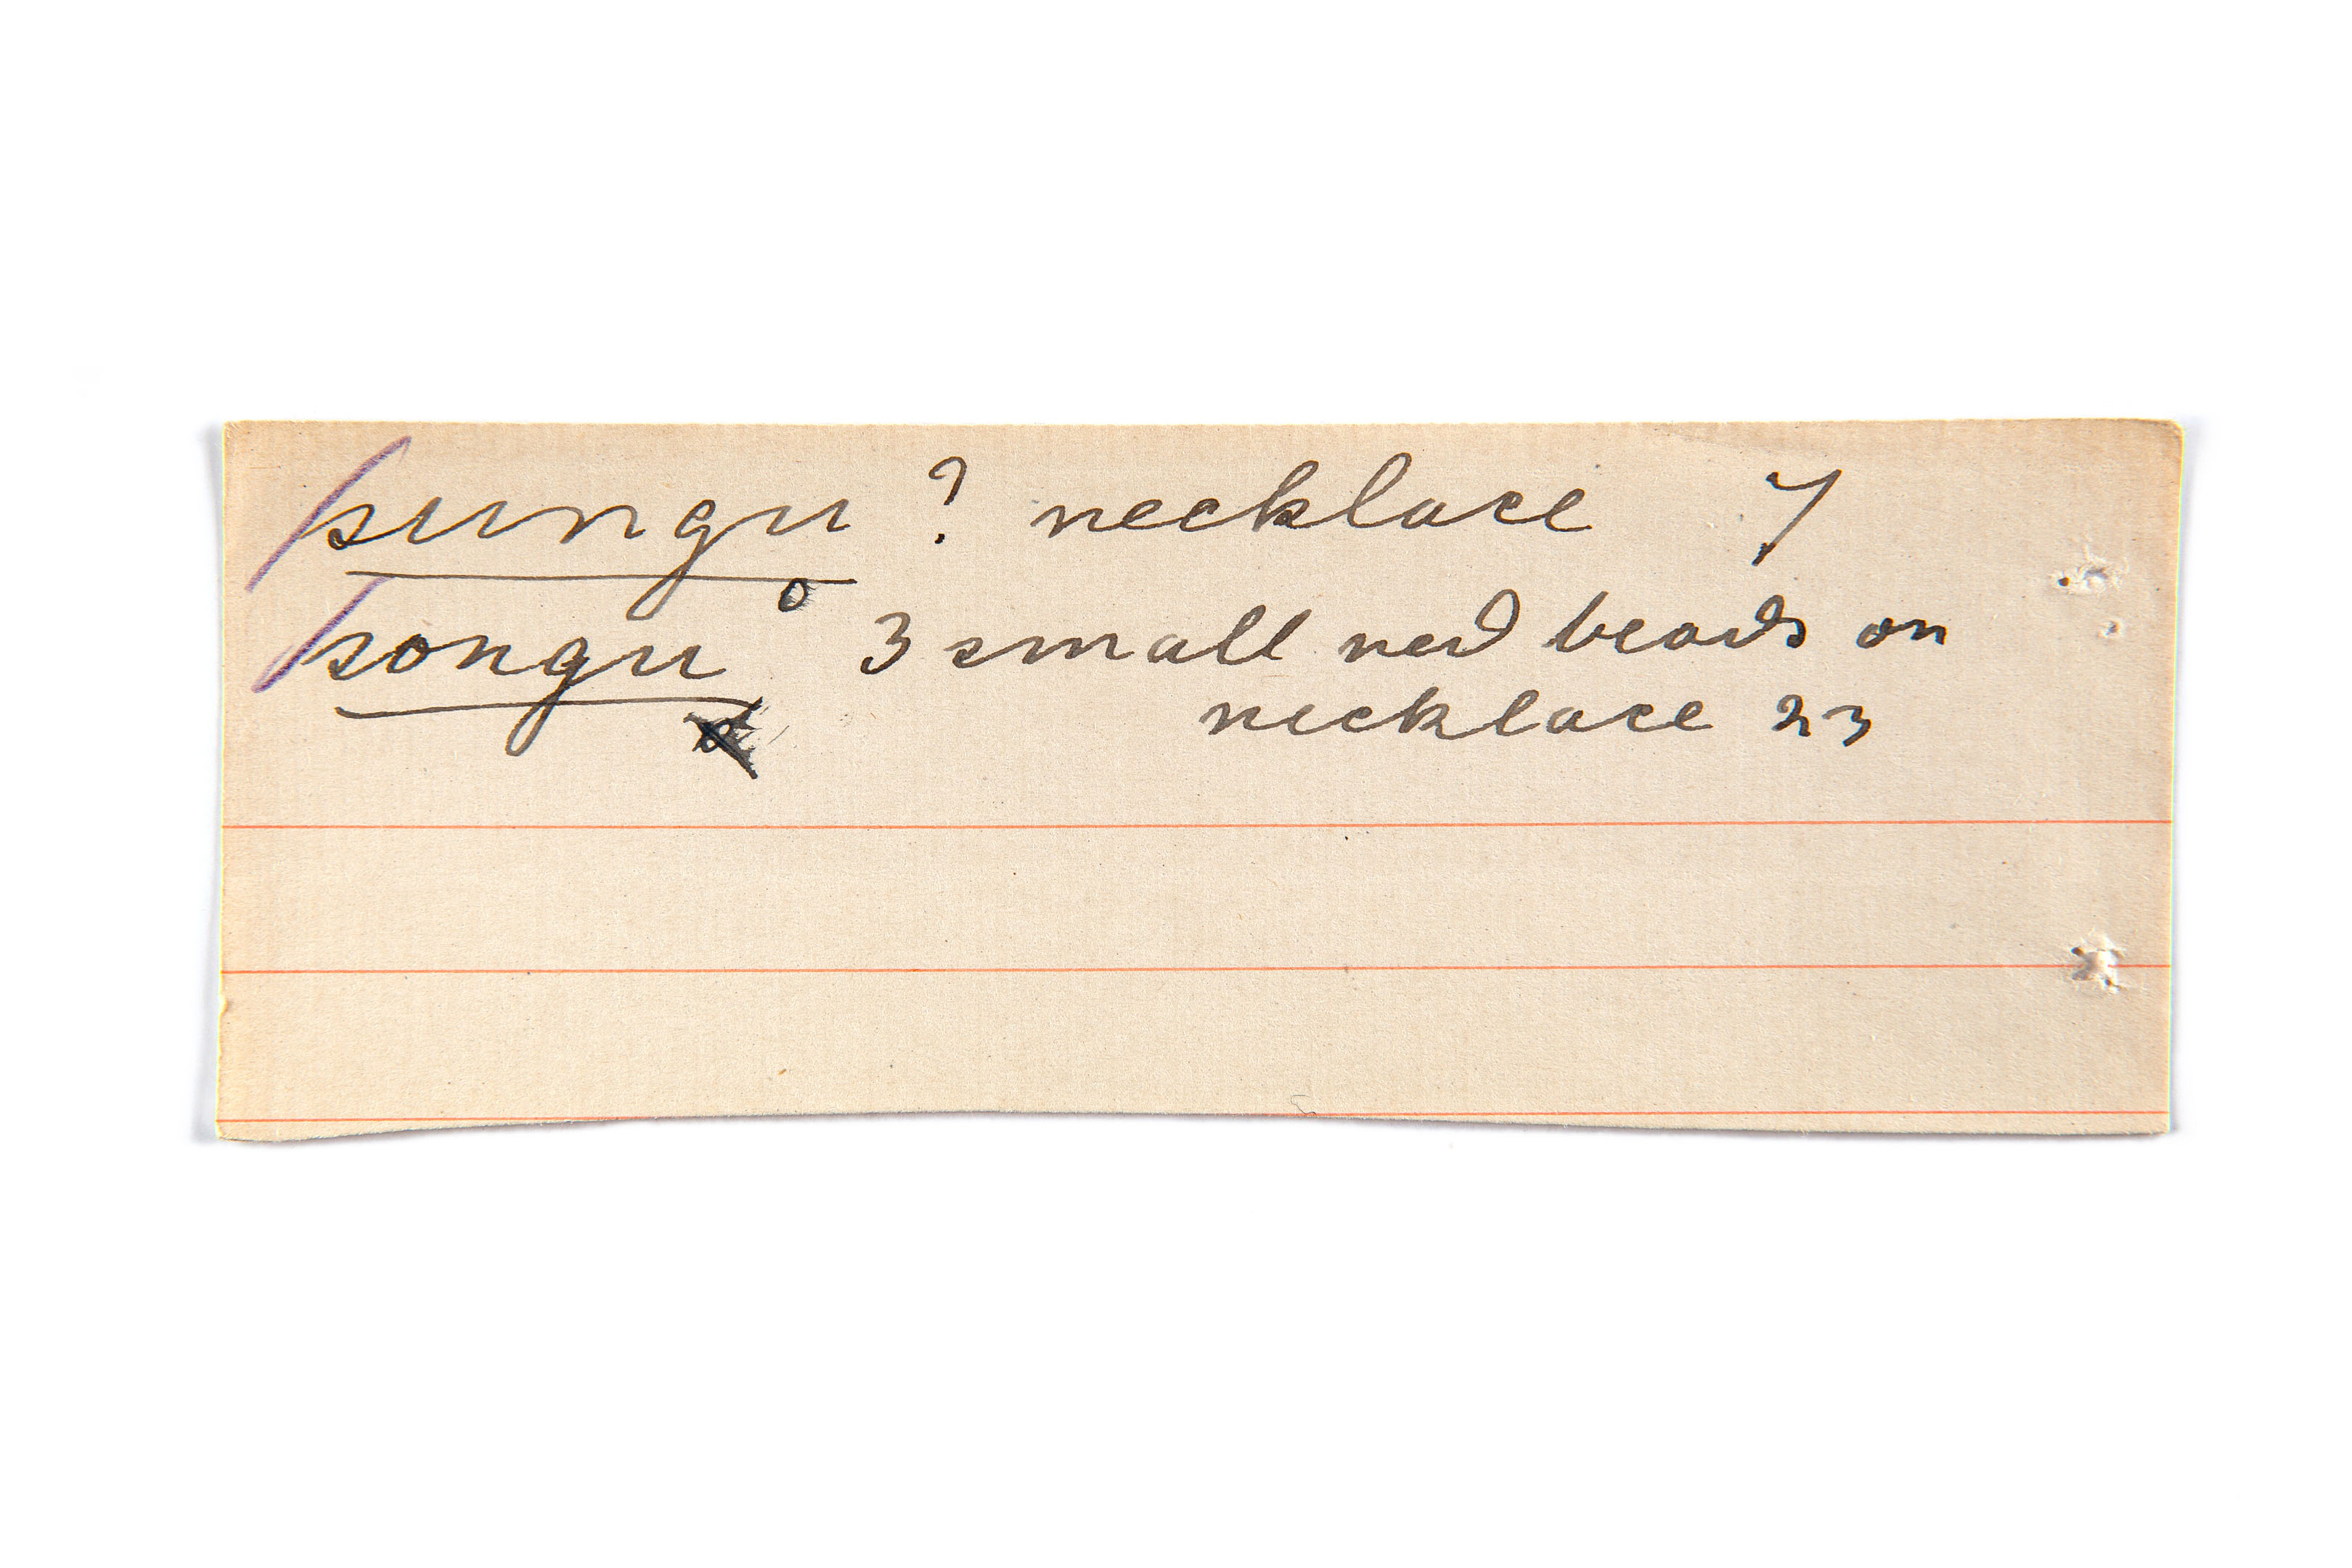 sungu ? necklace 7
o
songu 3 small red beads on
necklace 23